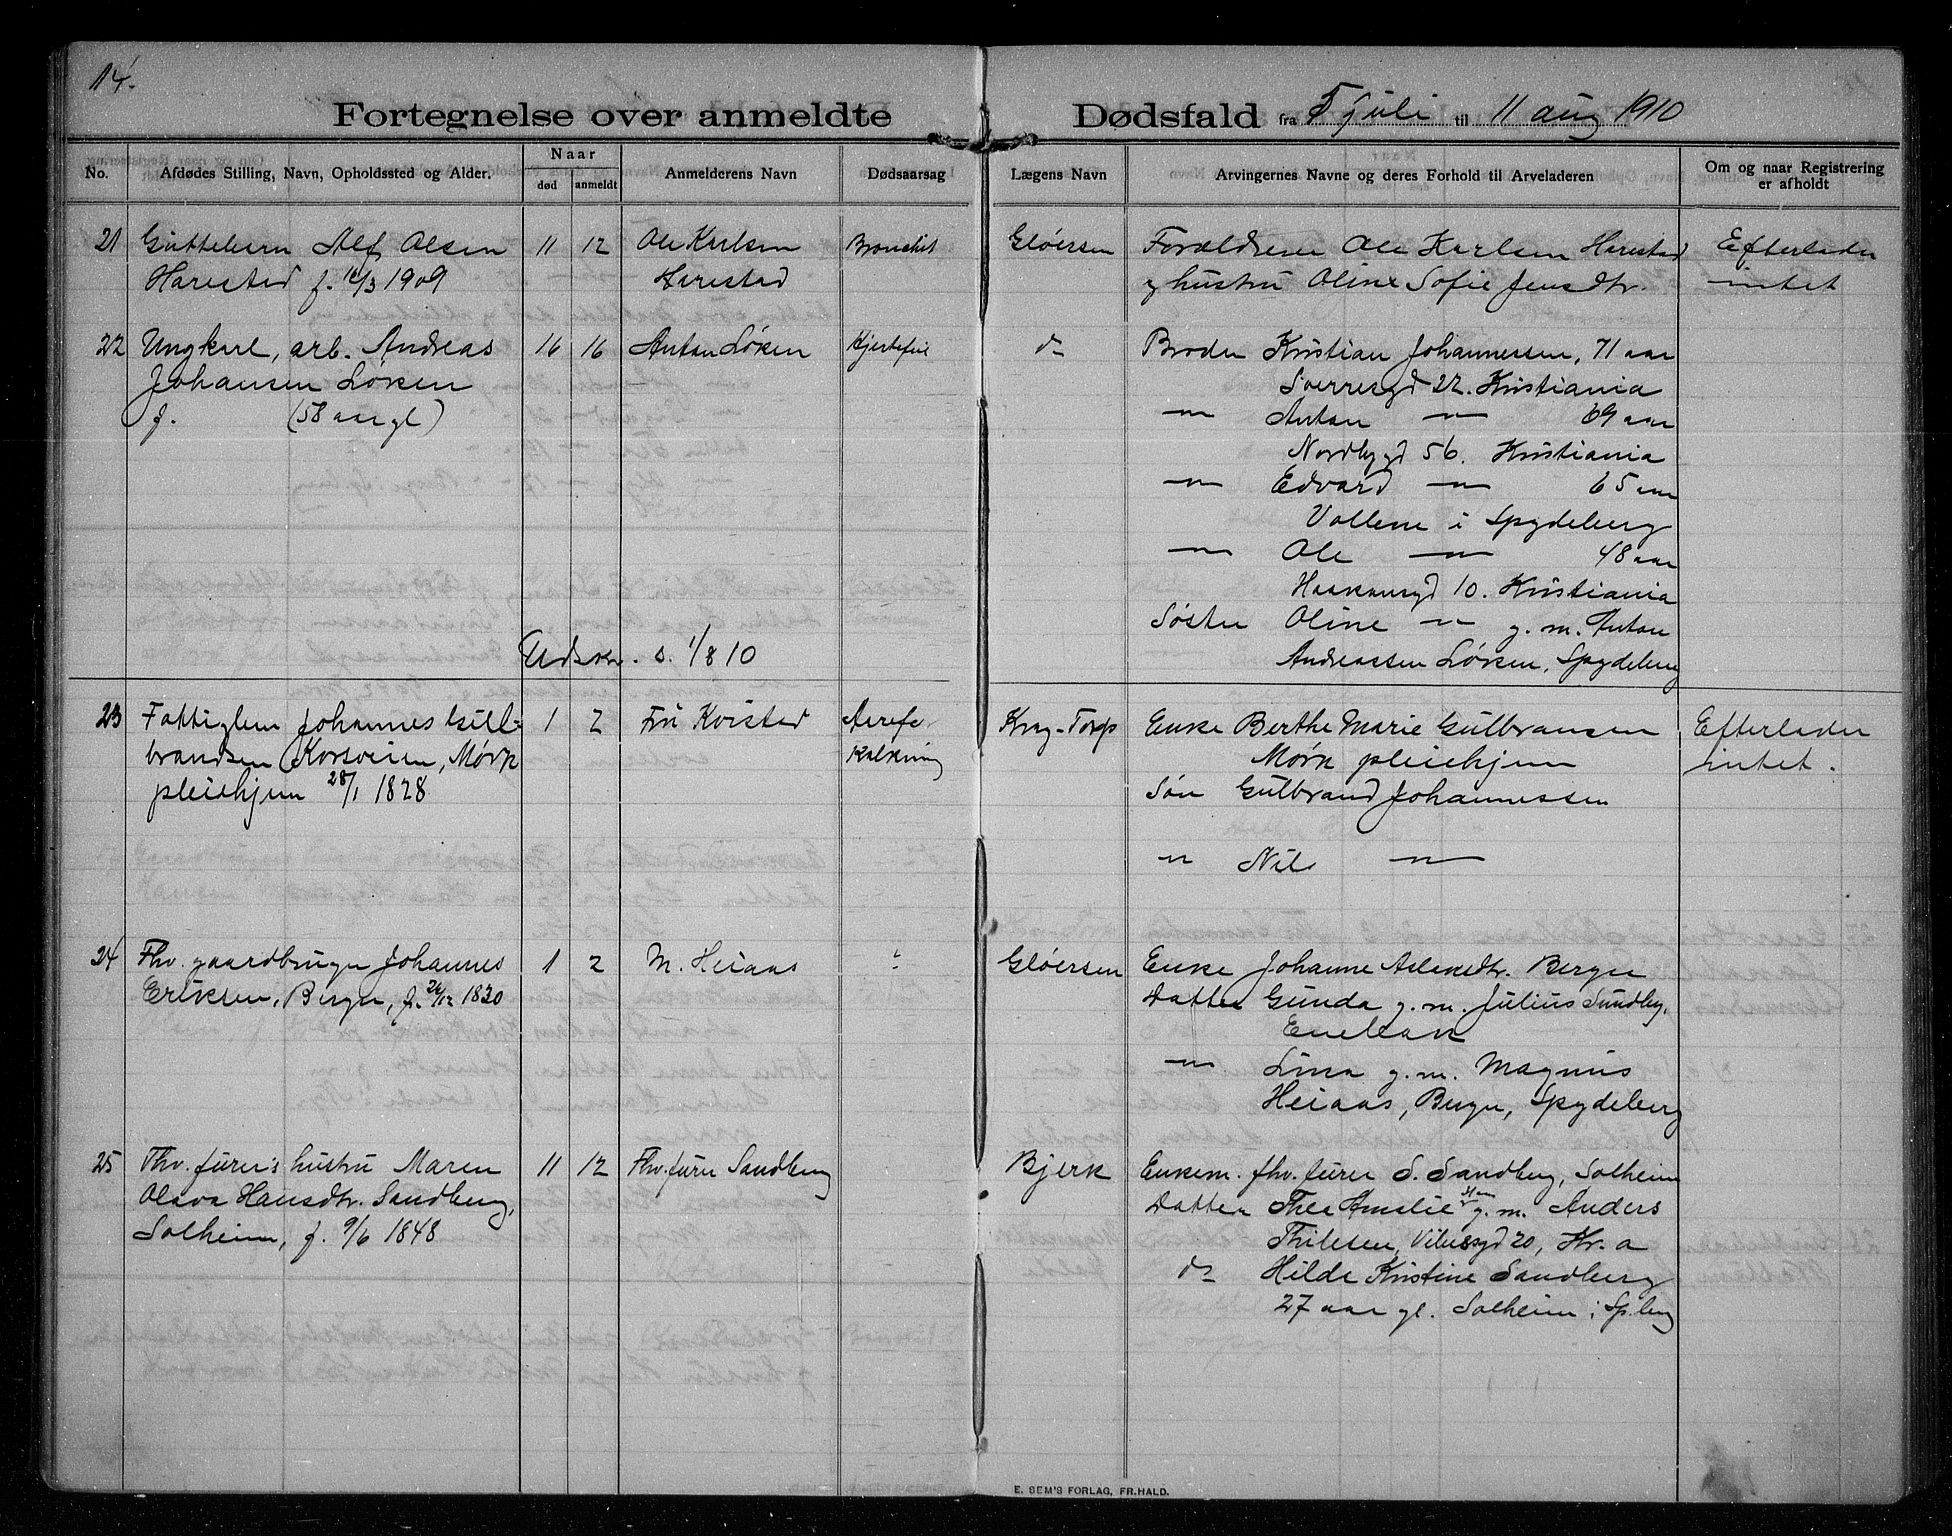 14.
Fortegnelse over anmeldte Dødsfald fra 5 juli til 11 aug 1910
No.
Afdødes Stilling, Navn, Opholdssted og Alder.
Naar
død
anmeldt
Anmelderens Navn
Dødsaarsag
Lægens Navn
Arvingernes Navne og deres Forhold til Arveladeren
Om og naar Registrering
er afholdt
21 Guttebarn Alf Olsen 11 12 Ole Karlsen Bronchit Gløersen Forældrene Ole Karlsen Harestad Efterlader
Harestad f. 16/3 1909 Harestad og hustru Oline Sofie Jensdtr. intet
22 Ungkarl, arb. Andreas 16 16 Anton Løken Hjertefeil do Broder Kristian Johannessen, 71 aar
Johansen Løken Sverresgd 22. Kristiania
f. (58 aar gl) — " — Anton — " — 69 aar
Nordbygd 56. Kristiania
— " — Edvard — " — 65 aar
Vollene i Spydeberg
— " — Ole — " — 48 aar
Haakonsgd 10. Kristiania
Søster Oline — " — g. m. Anton
Udskr. s. 1/8 10 Andreassen Løken, Spydeberg
23 Fattiglem Johannes Gull- 1 2 Frk Kvistad Aarefor- Krag-Torp Enke Berthe Marie Gulbransen Efterlader
brandsen Korsveien, Mørk kalkning Mørk pleiehjem intet.
pleiehjem 28/1 1828 Søn Gulbrand Johannessen
— " — Nils — " —
24 Fhv. gaardbruger Johannes 1 2 M. Heiaas " Gløersen Enke Johanne Aslaksdtr. Berger
Eriksen, Berger, f. 26/12 1830 Datter Gunda g. m. Julius Sundby,
Enebak
— " — Lina g. m. Magnus
Heiaas, Berger, Spydeberg
25 Fhv. furer's hustru Maren 11 12 Fhv. furer Sandberg Bjerk Enkem. fhv. furer S. Sandberg, Solheim
Olava Hansdtr. Sandberg, Datter Thea Amalie g. m. Anders
Solheim, f. 9/6 1848 Thilesen, Vibesgd 20, Kr.a
do Hilda Kristine Sandberg
27 aar gl. Solheim i Sp.berg
E. SEM'S FORLAG, FR.HALD.